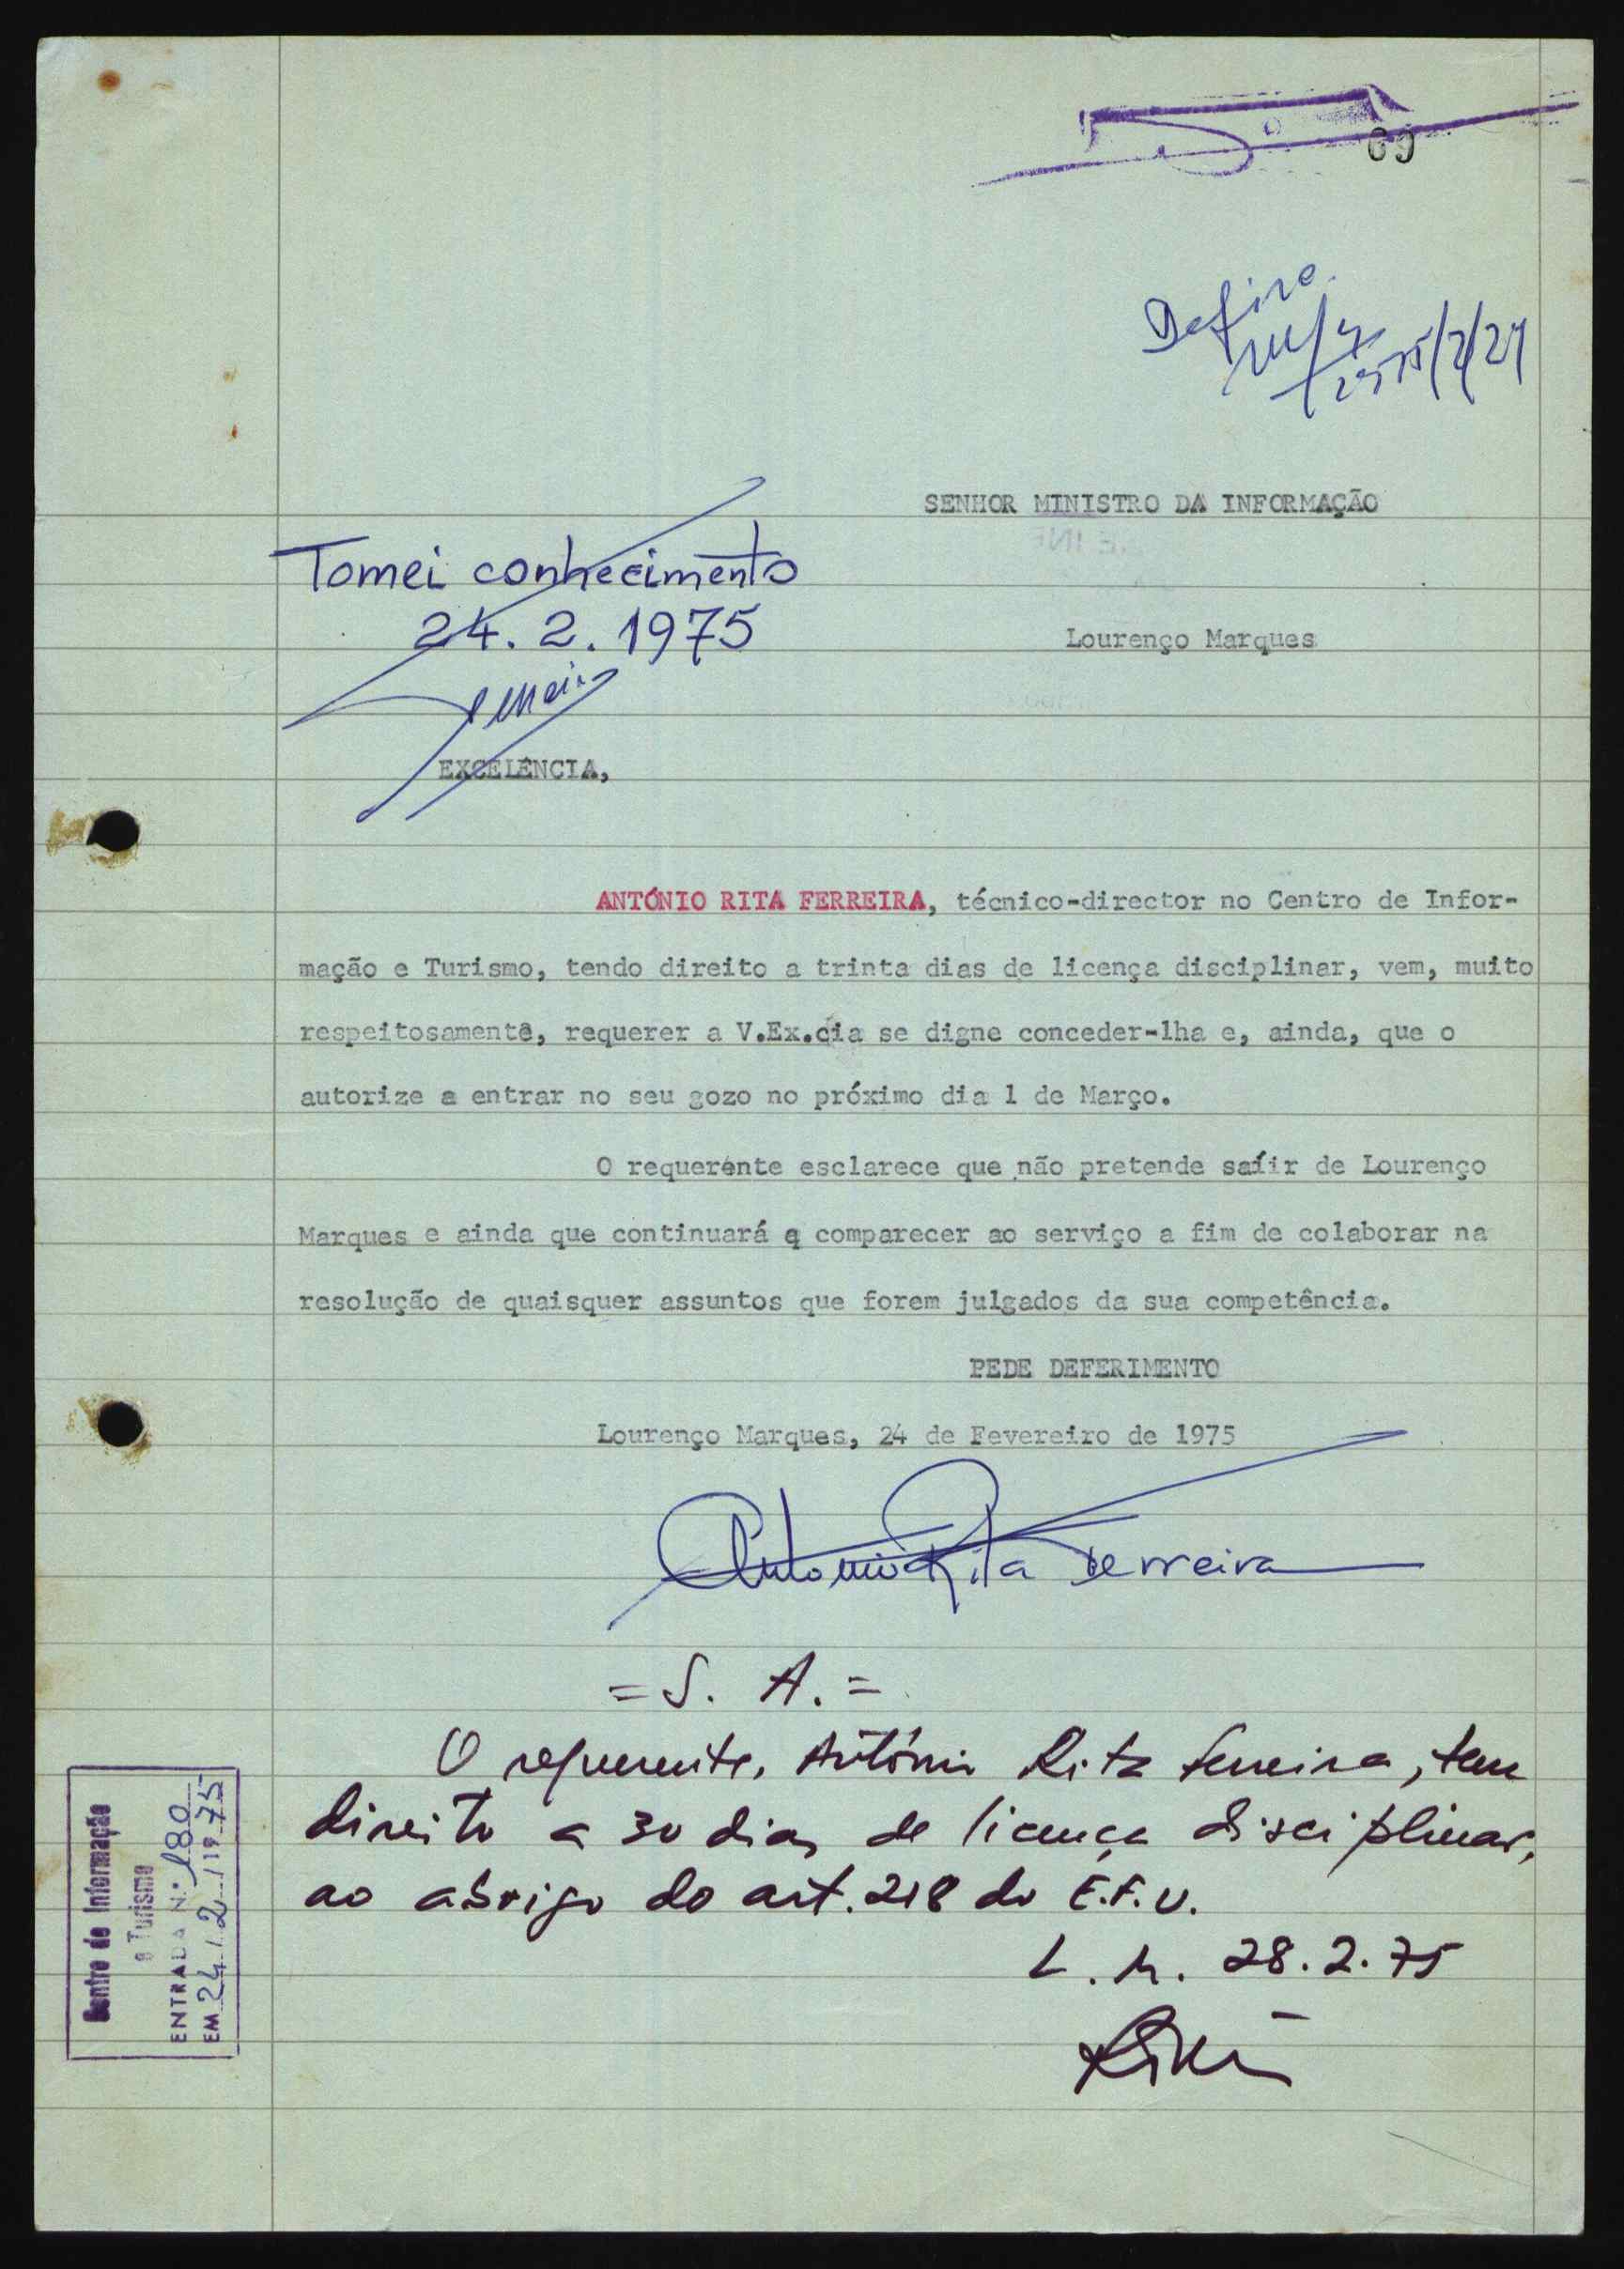 69
Defiro.
1975/2/27
SENHOR MINISTRO DA INFORMAÇÃO
Tomei conhecimento
24.2.1975
Lourenço Marques
EXCELÊNCIA,
ANTÓNIO RITA FERREIRA, técnico-director no Centro de Infor-
mação e Turismo, tendo direito a trinta dias de licença disciplinar, vem, muito
respeitosamente, requerer a V.Ex.cia se digne conceder-lha e, ainda, que o
autorize a entrar no seu gozo no próximo dia 1 de Março.
O requerente esclarece que não pretende saíir de Lourenço
Marques e ainda que continuará a comparecer ao serviço a fim de colaborar na
resolução de quaisquer assuntos que forem julgados da sua competência.
PEDE DEFERIMENTO
Lourenço Marques, 24 de Fevereiro de 1975
António Rita Ferreira
= S. A. =
O requerente, António Rita Ferreira, tem
direito a 30 dias de licença disciplinar,
ao abrigo do art. 218 do E.F.U.
L.M. 28.2.75
Centro de Informação
e Turismo
ENTRADA N.º 180
EM 24/2/1975